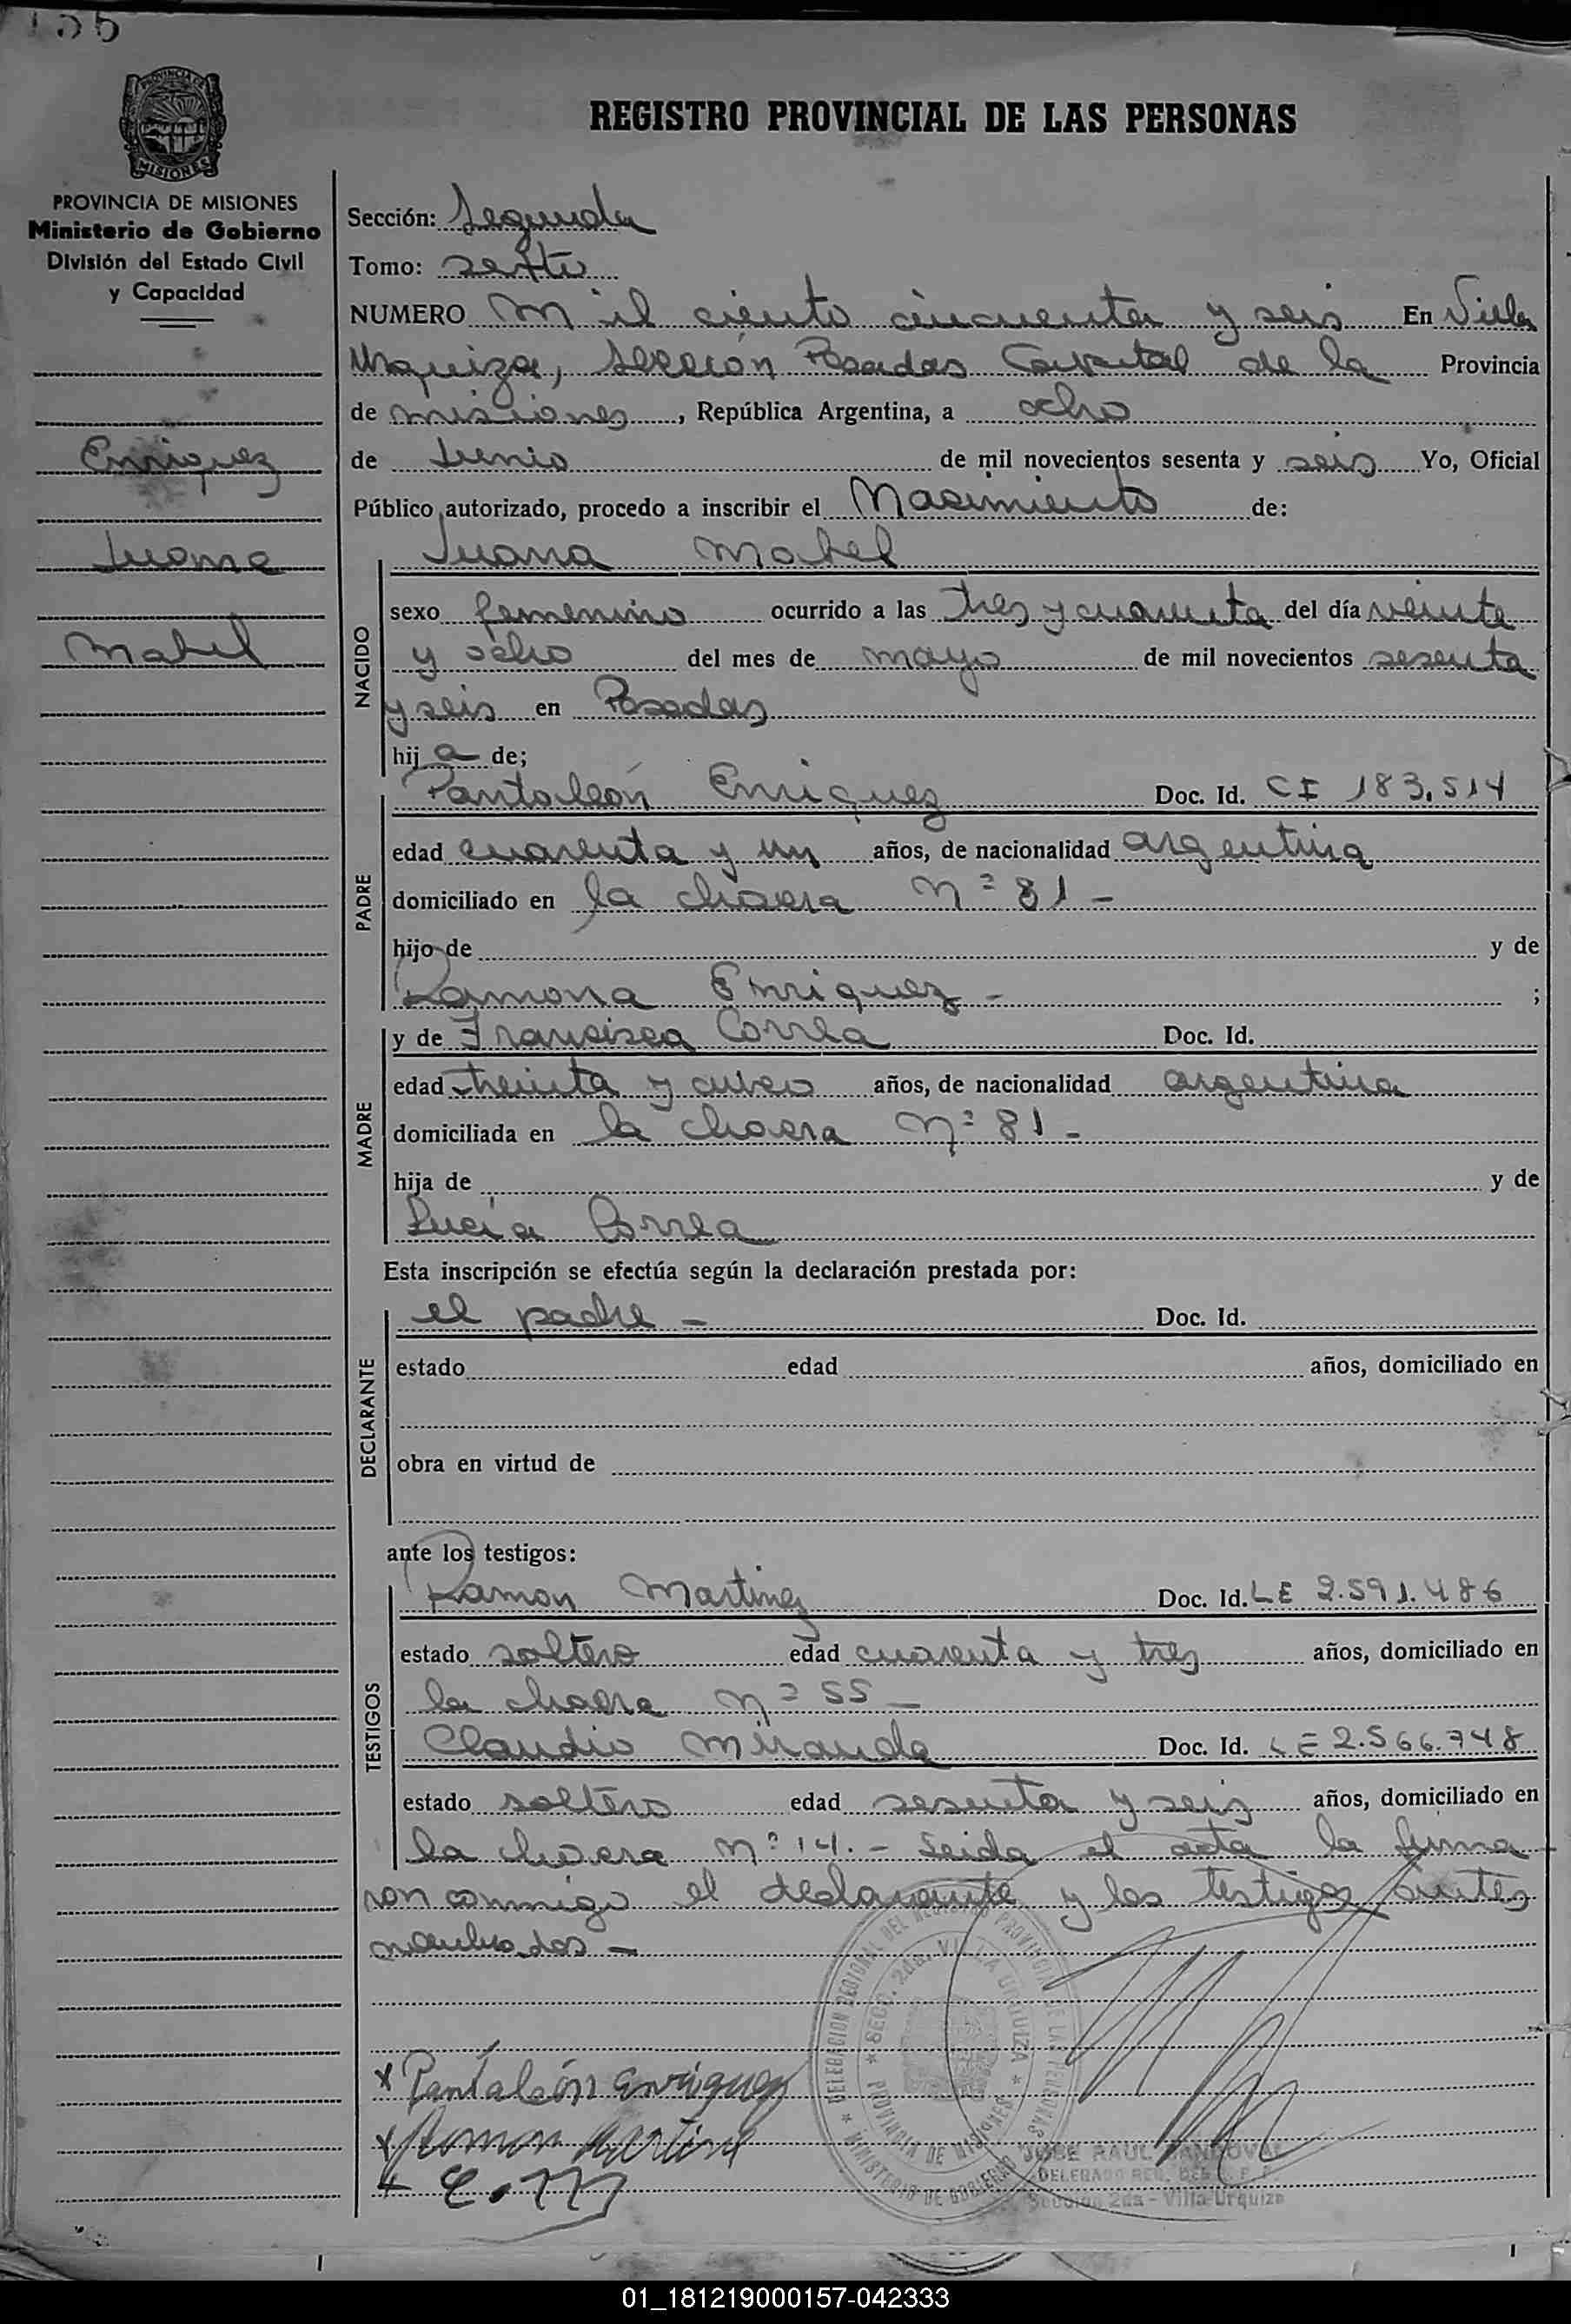 155
PROVINCIA DE
MISIONES
REGISTRO PROVINCIAL DE LAS PERSONAS
PROVINCIA DE MISIONES
Ministerio de Gobierno
División del Estado Civil
y Capacidad
Enriquez
Juana
Mabel
Sección: Segunda
Tomo: sexto
NUMERO Mil ciento cincuenta y seis En Villa
Urquiza, Sección Posadas Capital de la Provincia
de misiones, República Argentina, a ocho
de Junio de mil novecientos sesenta y seis Yo, Oficial
Público autorizado, procedo a inscribir el Nacimiento de:
Juana Mabel
NACIDO
sexo femenino ocurrido a las tres y cuarenta del día veinte
y ocho del mes de mayo de mil novecientos sesenta
y seis en Posadas
hija de;
PADRE
Pantaleón Enriquez Doc. Id. CI 183.514
edad cuarenta y un años, de nacionalidad argentina
domiciliado en la chacra Nº 81 -
hijo de y de
Ramona Enriquez - ;
MADRE
y de Francisca Correa Doc. Id.
edad treinta y cinco años, de nacionalidad argentina
domiciliada en la chacra Nº 81 -
hija de y de
Lucía Correa
Esta inscripción se efectúa según la declaración prestada por:
DECLARANTE
el padre - Doc. Id.
estado edad años, domiciliado en
obra en virtud de
ante los testigos:
TESTIGOS
Ramon Martinez Doc. Id. LE 2.591.486
estado soltero edad cuarenta y tres años, domiciliado en
la chacra Nº 55 -
Claudio Miranda Doc. Id. LE 2.566.748
estado soltero edad sesenta y seis años, domiciliado en
la chacra Nº 14. - Leida el acta la firma
ron conmigo el declarante y los testigos antes
nombrados -
x Pantaleón Enriquez
x Ramon Martinez
x C. M
DELEGACION REGIONAL DEL REGISTRO PROVINCIAL DE LAS PERSONAS
MINISTERIO DE GOBIERNO
SECC. 2da. VILLA URQUIZA
PROVINCIA DE MISIONES
JOSE RAUL SANDOVAL
DELEGADO REG. DEL R. P. P.
Sección 2da - Villa Urquiza
01_181219000157-042333